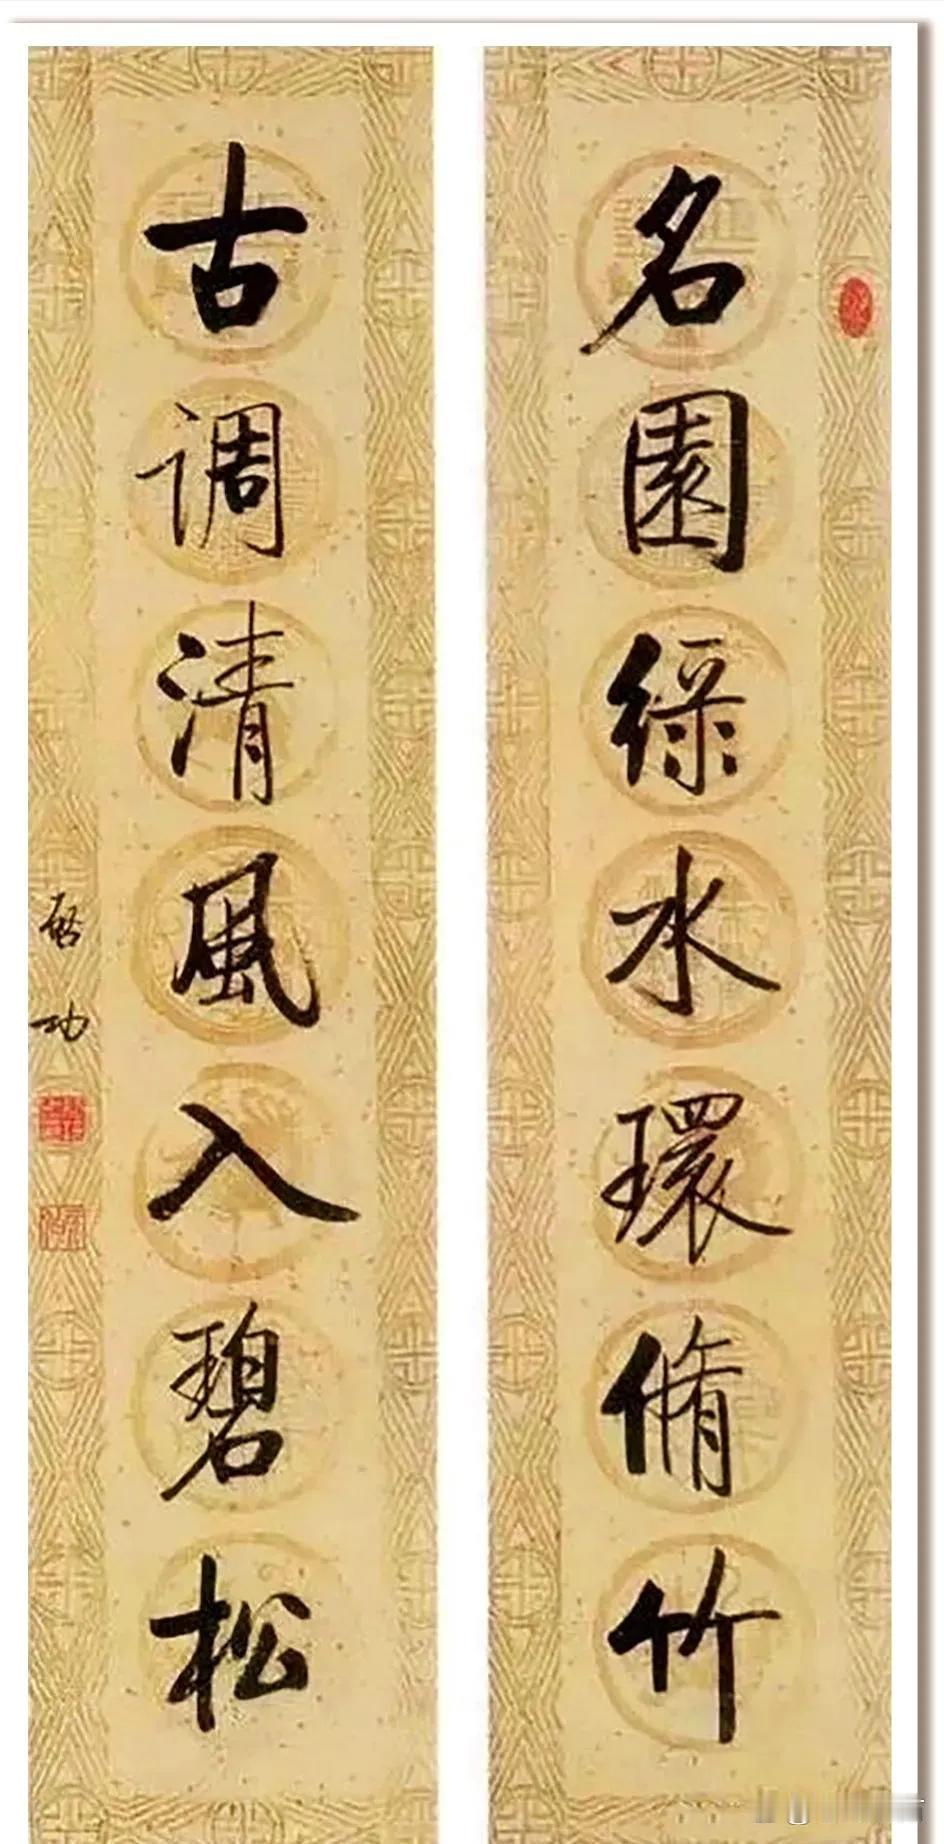 名園綠水環脩竹
古调清風入碧松
啟功